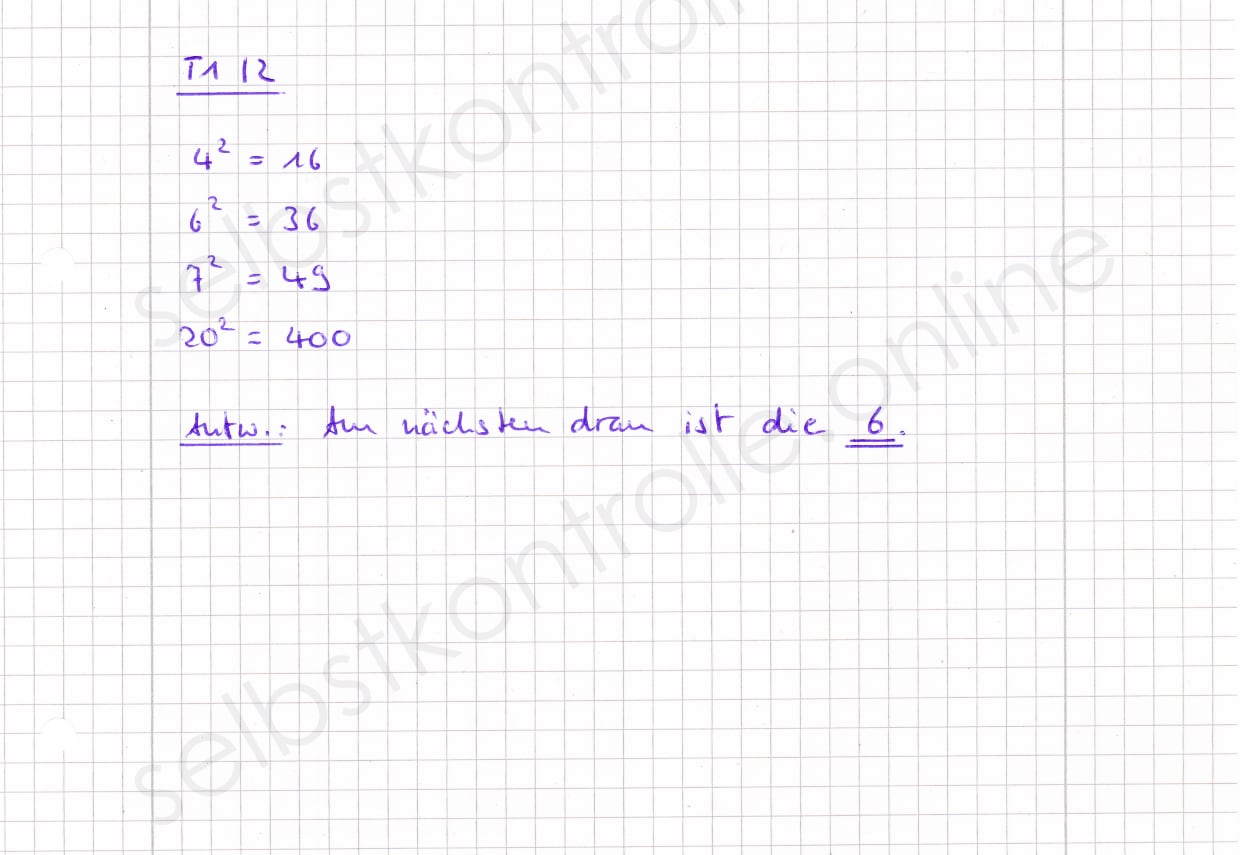 T1 | 2
4² = 16
6² = 36
7² = 49
20² = 400
Antw.: Am nächsten dran ist die 6.
selbstkontrolle.online
selbstkontroll